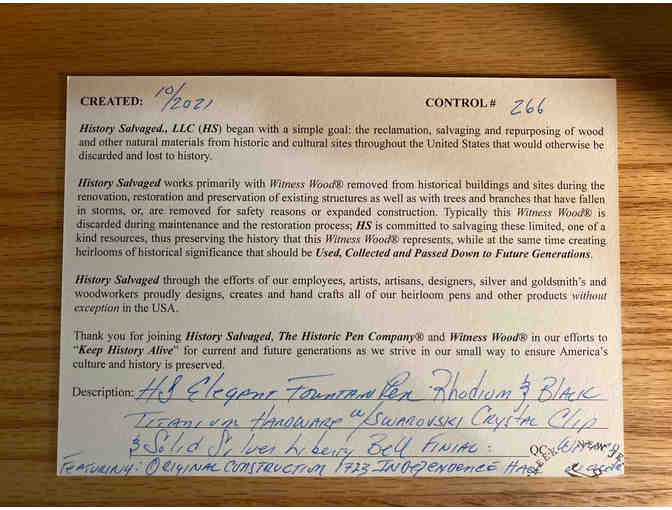 CREATED: 10/2021 CONTROL # 266
History Salvaged., LLC (HS) began with a simple goal: the reclamation, salvaging and repurposing of wood
and other natural materials from historic and cultural sites throughout the United States that would otherwise be
discarded and lost to history.
History Salvaged works primarily with Witness Wood® removed from historical buildings and sites during the
renovation, restoration and preservation of existing structures as well as with trees and branches that have fallen
in storms, or, are removed for safety reasons or expanded construction. Typically this Witness Wood® is
discarded during maintenance and the restoration process; HS is committed to salvaging these limited, one of a
kind resources, thus preserving the history that this Witness Wood® represents, while at the same time creating
heirlooms of historical significance that should be Used, Collected and Passed Down to Future Generations.
History Salvaged through the efforts of our employees, artists, artisans, designers, silver and goldsmith's and
woodworkers proudly designs, creates and hand crafts all of our heirloom pens and other products without
exception in the USA.
Thank you for joining History Salvaged, The Historic Pen Company® and Witness Wood® in our efforts to
"Keep History Alive" for current and future generations as we strive in our small way to ensure America's
culture and history is preserved.
Description: HS Elegant Fountain Pen - Rhodium & Black
Titanium Hardware w/Swarovski Crystal Clip
& Solid Silver Liberty Bell Finial:
Featuring: Original Construction 1723 Independence Hall